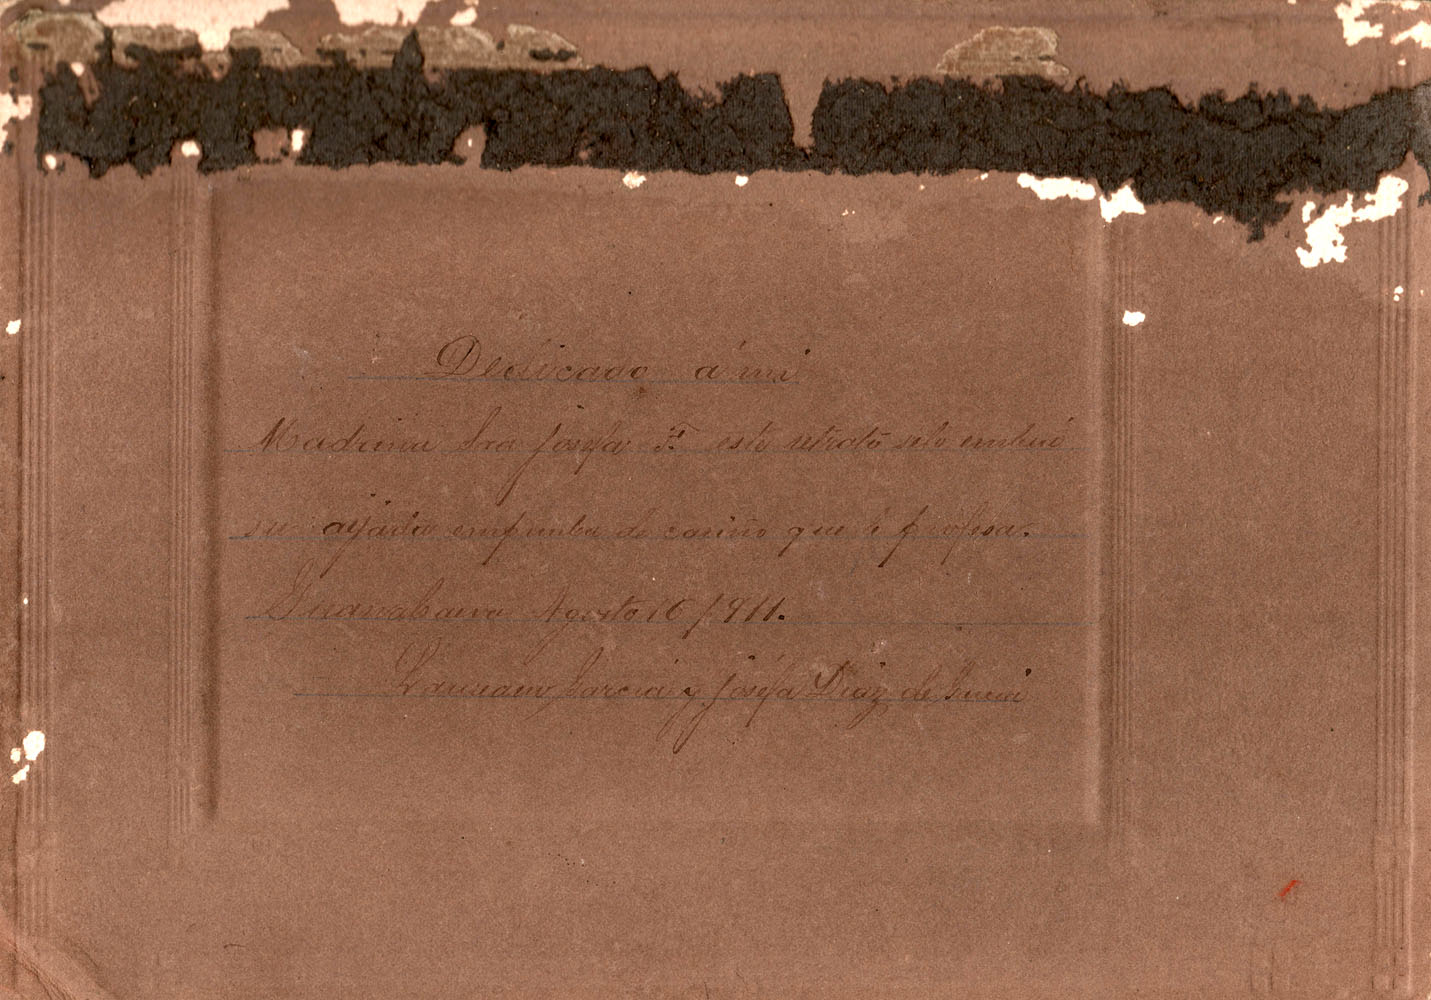 Dedicado á mi
Madrina Sra Josefa F. este retrato selo embia
su ayada enprueba de cariño que le profesa.
Guanabacoa Agosto 10/911.
Laureano Garcia y Josefa Diaz de